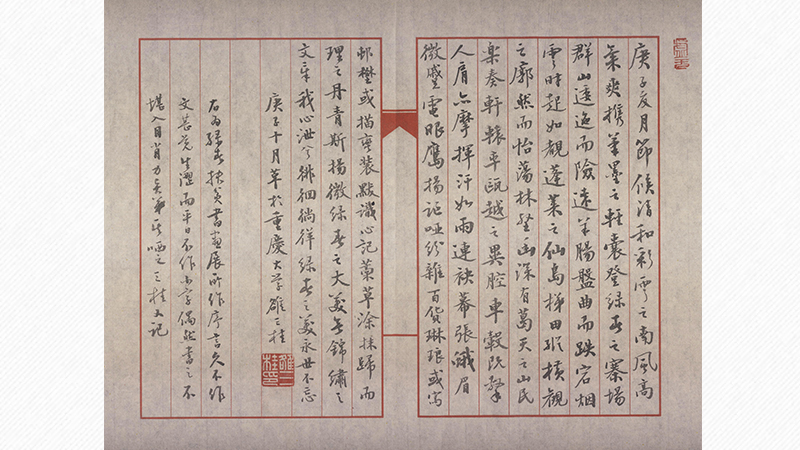 庚子亥月節候清和彩雲之南風高
氣爽携筆墨之輕囊登綠春之寨場
群山逶迤而險遠羊腸盤曲而跌宕烟
雲時起如覩蓬萊之仙島梯田縱橫觀
之廓然而怡蕩林壑幽深有葛天之山民
樂奏軒轅甌越之異腔車轂既擊
人肩亦摩揮汗如雨連袂幕張蛾眉
微蹙電眼鷹揚啞紛雜百貨琳琅或寫
邨或描裝默識心記藁草涂抹歸而
理之丹青斯揚微綠春之大美無錦繡之
文章我心泄兮徘徊徜徉綠春之美永世不忘
庚子十月草於重慶大學雒三桂
雒三桂印
右為綠春扶貧書畫展所作序言久不作
文甚覺生澀而平日不作小字偶然書之不
堪入目肖力兄哂之三桂又記